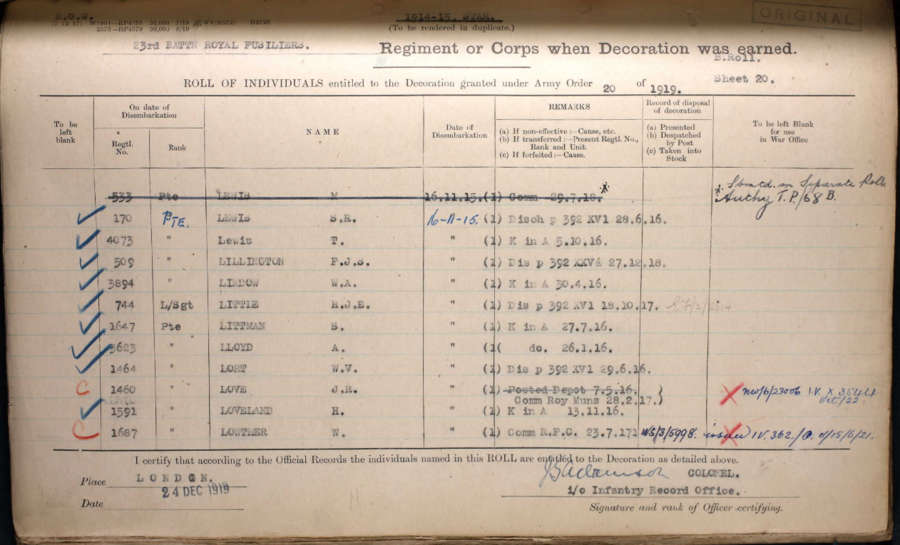 1914-15. STAR.
ORIGINAL
(To be rendered in duplicate.)
23rd BATTN ROYAL FUSILIERS. Regiment or Corps when Decoration was earned.
B.Roll.
Sheet 20.
ROLL OF INDIVIDUALS entitled to the Decoration granted under Army Order 20 of 1919.
To be left blank
On date of Disembarkation
Regtl. No.
Rank
NAME
Date of Disembarkation
REMARKS
(a) If non-effective :—Cause, etc.
(b) If transferred :—Present Regtl. No., Rank and Unit.
(c) If forfeited :—Cause.
Record of disposal of decoration
(a) Presented
(b) Despatched by Post
(c) Taken into Stock
To be left Blank for use in War Office
533 Pte LEWIS M 16.11.15. (1) Comm 29.7.18. on Separate Rolls
Authy T.P/68 B.
170 PTE. LEWIS S.R. 16-11-15. (1) Disch p 392 XV1 28.6.16.
4073 " Lewis T. " (1) K in A 5.10.16.
509 " LILLINGTON F.J.S. " (1) Dis p 392 27.12.18.
3894 " LINDOW W.A. " (1) K in A 30.4.16.
744 L/Sgt LITTLE H.J.E. " (1) Dis p 392 XV1 18.10.17.
1647 Pte LITTMAN S. " (1) K in A 27.7.16.
3623 " LLOYD A. " (1( do. 26.1.16.
1464 " LORT W.V. " (1) Dis p 392 XV1 29.6.16.
1460 " LOVE J.R. " (1) Posted Depot 7.5.16. )
Comm Roy Muns 28.2.17.)
1591 " LOVELAND H. " (1) K in A 13.11.16.
1687 " LOWTHER W. " (1) Comm R.F.C. 23.7.171 IV.362/
I certify that according to the Official Records the individuals named in this ROLL are entitled to the Decoration as detailed above.
Place LONDON.
COLONEL.
Date 24 DEC 1919
i/o Infantry Record Office.
Signature and rank of Officer certifying.